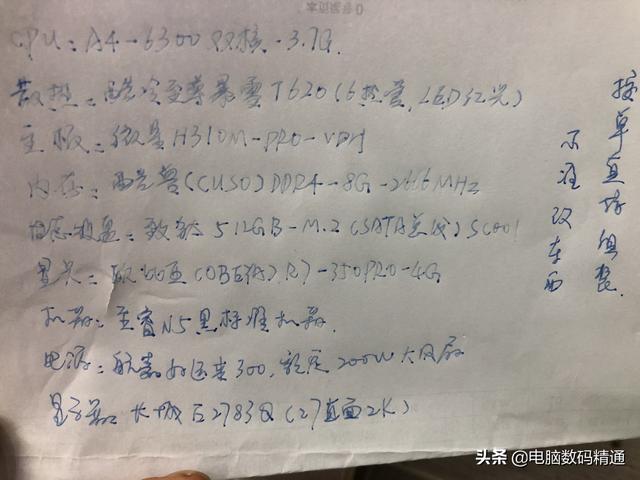 CPU: A4-6300 双核-3.7G.
散热: 酷冷至尊暴雪T620(6热管, LED红光)
主板: 微星H310M-PRO-VDH
内存: 酷兽(CUSO)DDR4-8G-2666MHz
固态硬盘: 512GB-M.2(SATA总线)SC001
显卡: 欧比亚(OBE)R7-350PRO-4G
机箱: 至睿N5黑标准机箱.
电源: 航嘉好运来300, 额定200W大风扇
显示器 长城E2783Q(27直面2K)
按单直接组装
不准改东西
头条 @电脑数码精通